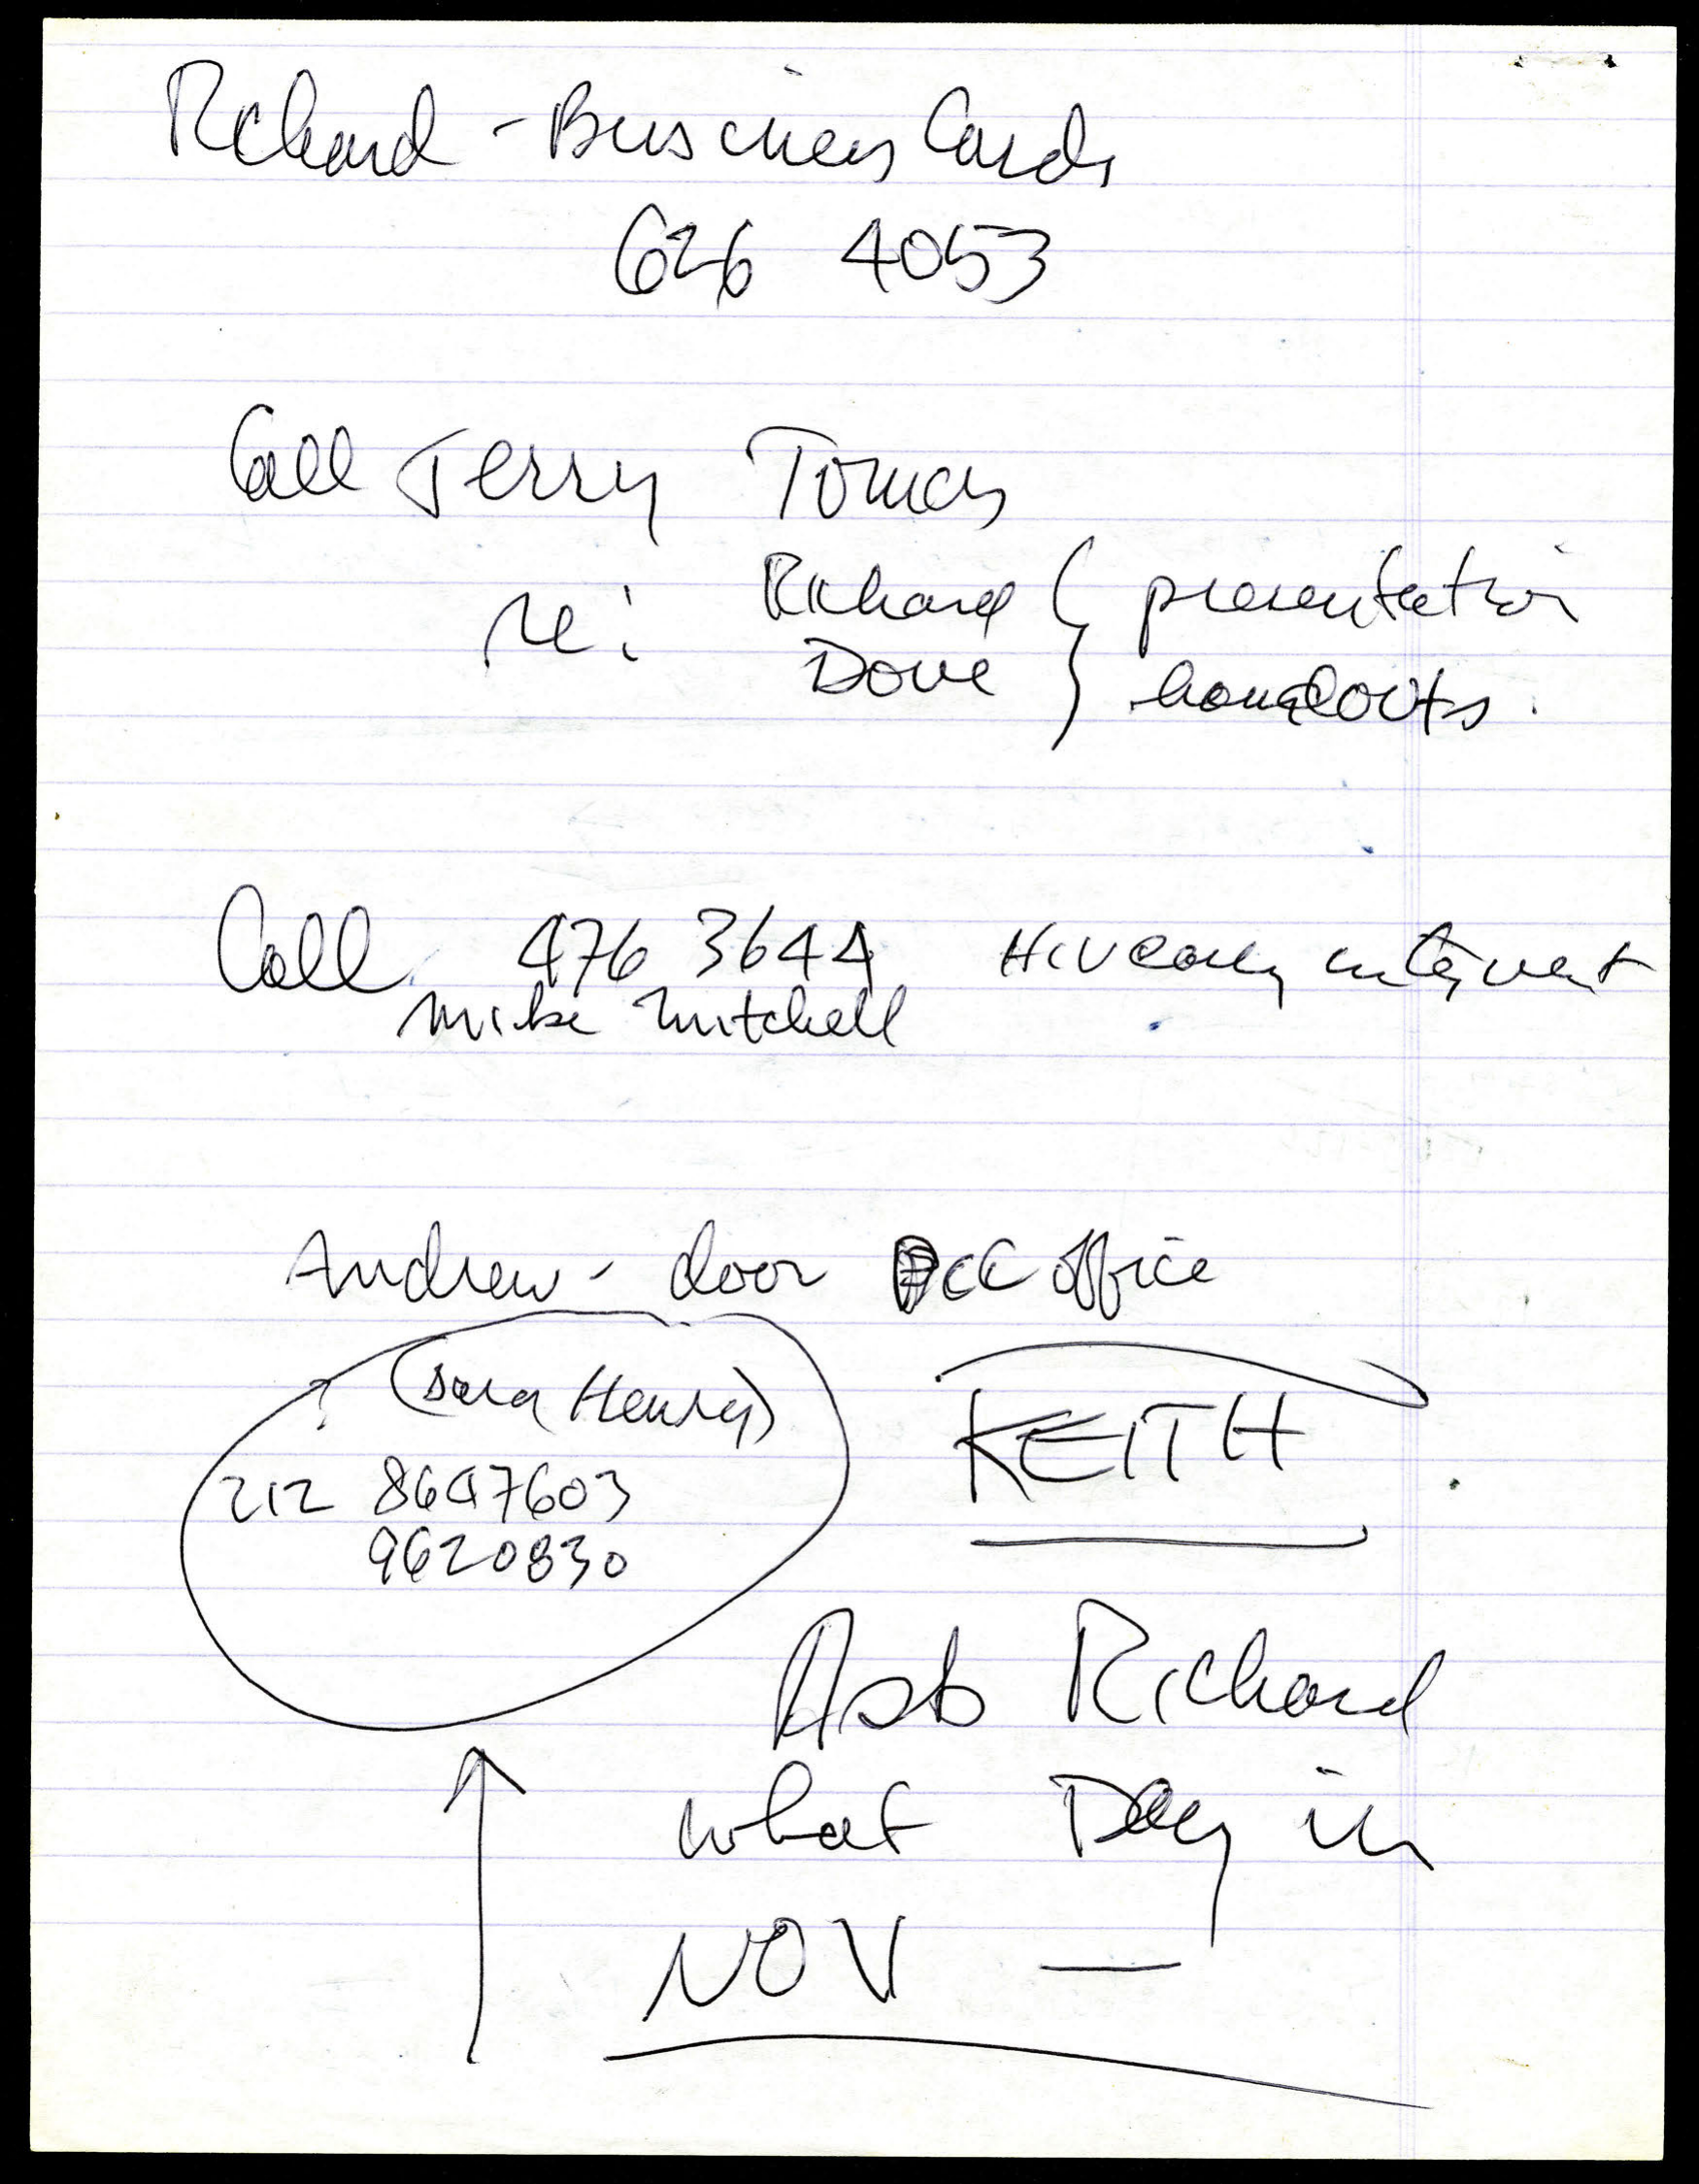 Richard - Business Cards
626 4053
Call Jerry Tomas
re: Richard { presentation
Dove } handouts.
Call 476 3644 HIV early intervent
Mike Mitchell
Andrew - door office
(Sara Henry)
212 8647603
9620830
KEITH
Ask Richard
what Day in
NOV —